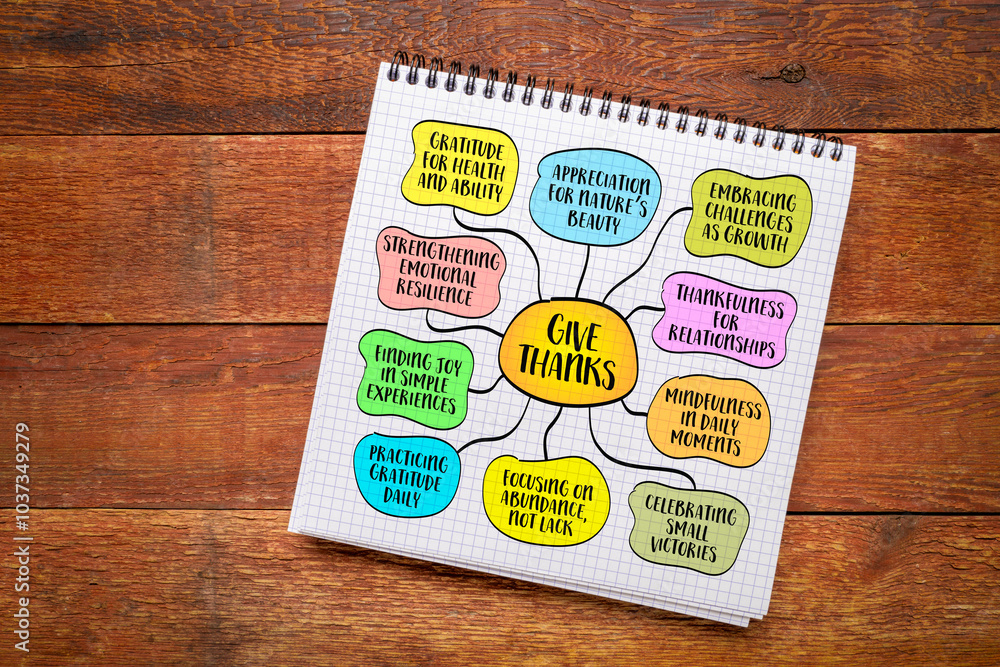 GRATITUDE
FOR HEALTH
AND ABILITY
APPRECIATION
FOR NATURE'S
BEAUTY
EMBRACING
CHALLENGES
AS GROWTH
STRENGTHENING
EMOTIONAL
RESILIENCE
THANKFULNESS
FOR
RELATIONSHIPS
GIVE
THANKS
FINDING JOY
IN SIMPLE
EXPERIENCES
MINDFULNESS
IN DAILY
MOMENTS
PRACTICING
GRATITUDE
DAILY
FOCUSING ON
ABUNDANCE,
NOT LACK
CELEBRATING
SMALL
VICTORIES
Adobe Stock | #1037349279